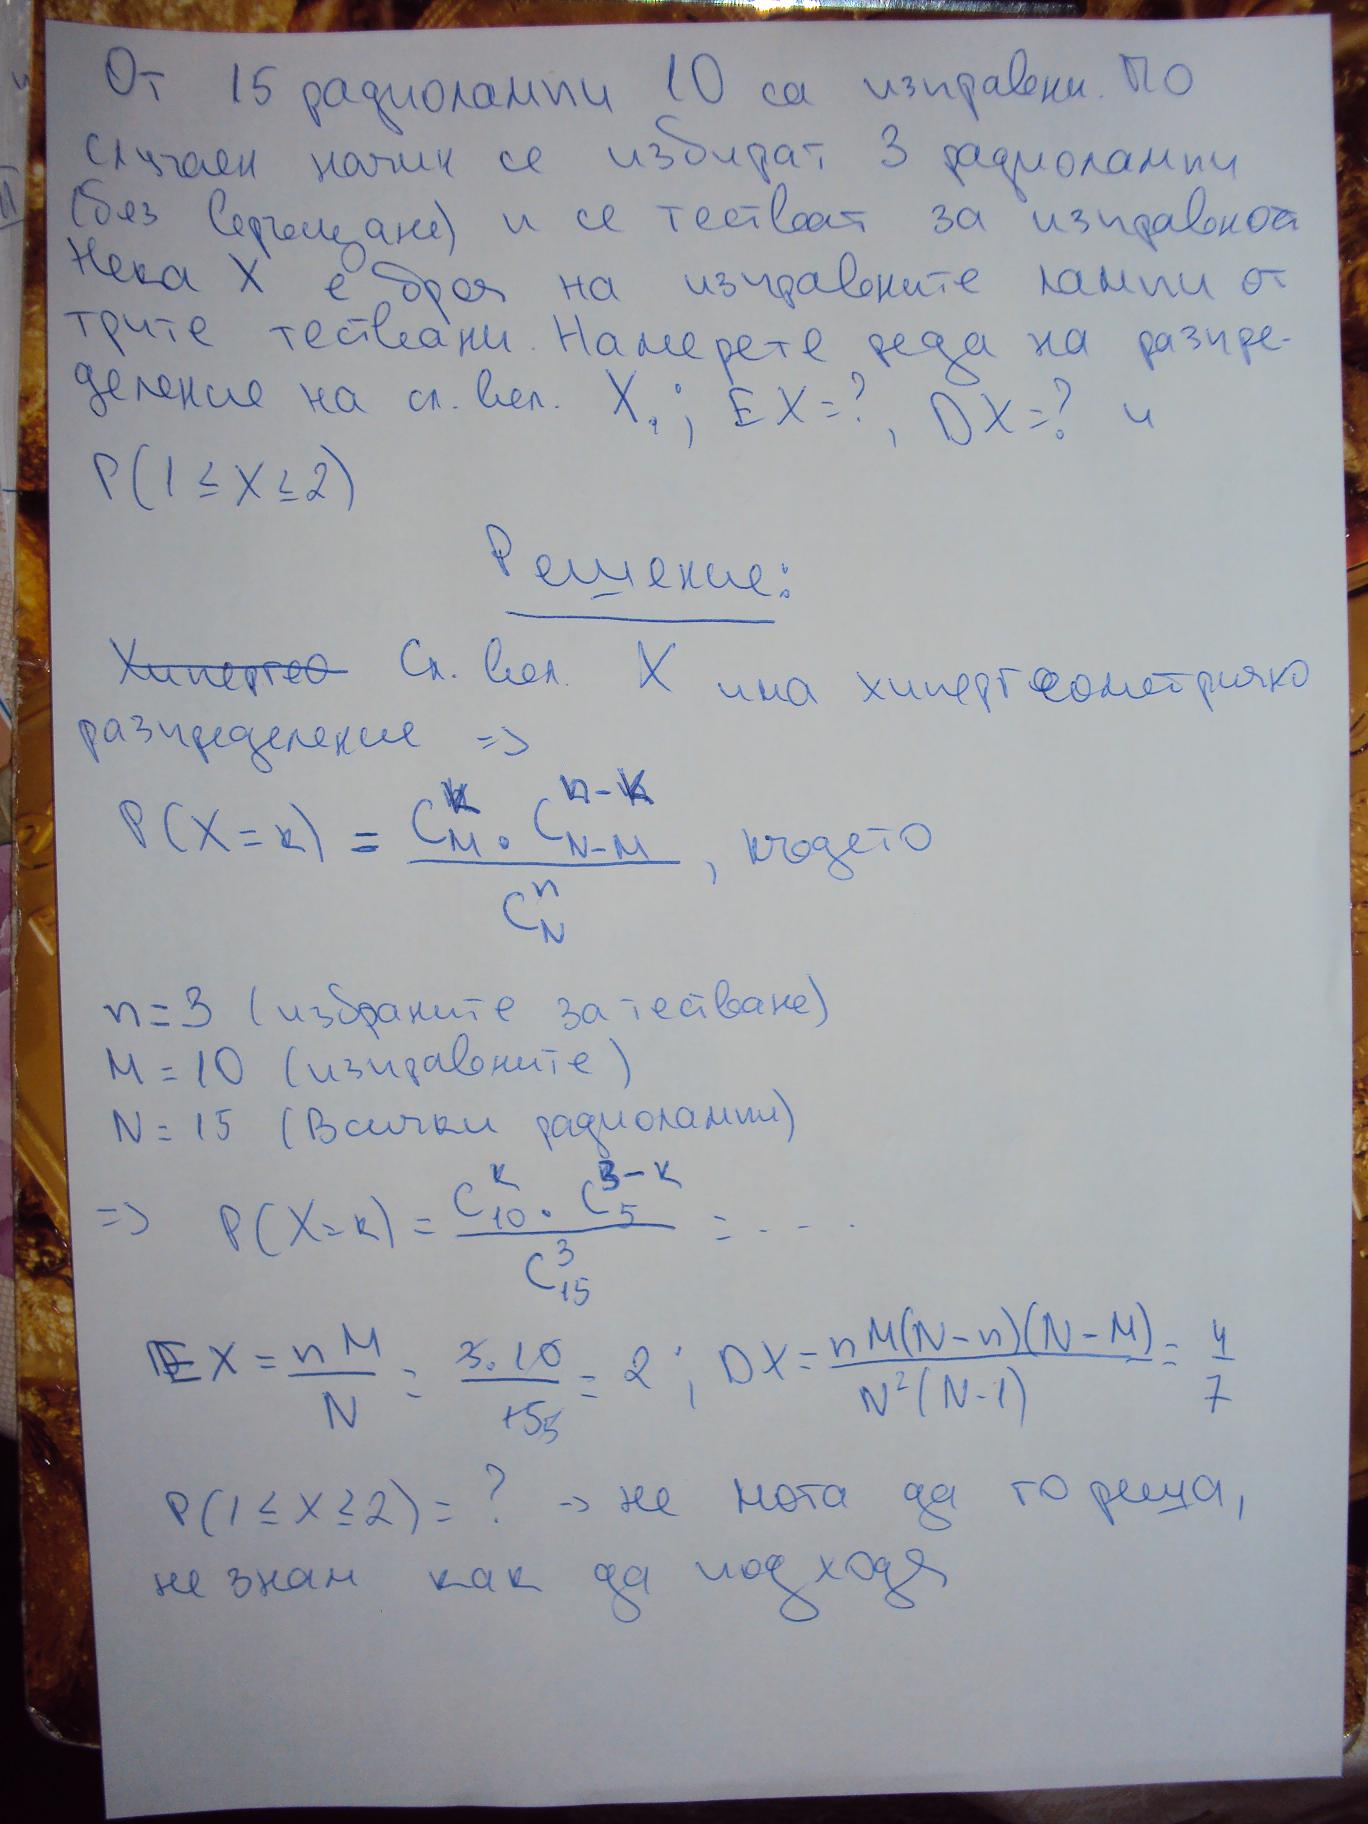 От 15 радиолампи 10 са изправни. По
случаен начин се избират 3 радиолампи
(без връщане) и се тестват за изправност
Нека X е броя на изправните лампи от
трите тествани. Намерете реда на разпре-
деление на сл. вел. X; EX=?, DX=? и
P(1 ≤ X ≥ 2)
Решение:
Хипергео Сл. вел. X има хипергеометрично
разпределение =>
P(X=k) = \frac{C_M^k . C_{N-M}^{n-k}}{C_N^n}, където
n=3 (избраните за тестване)
M=10 (изправните)
N=15 (Всички радиолампи)
=> P(X=k) = \frac{C_{10}^k . C_5^{3-k}}{C_{15}^3} = ....
EX = \frac{nM}{N} = \frac{3.10}{15} = 2; DX = \frac{nM(N-n)(N-M)}{N^2(N-1)} = \frac{4}{7}
P(1 ≤ X ≥ 2) = ? -> не мога да го реша,
не знам как да подходя